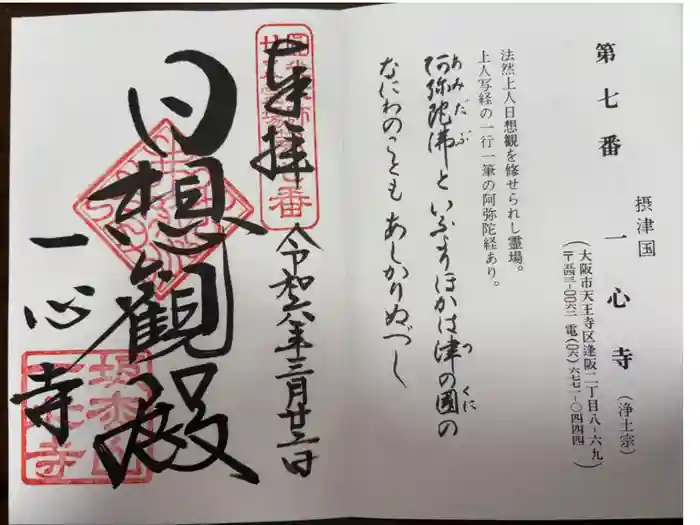 第七番
摂津国
一心寺（浄土宗）
大阪市天王寺区逢阪二丁目八-六九
（〒五四三-〇〇六二 電（〇六）六七七一-〇四四四
法然上人日想観を修せられし霊場。
上人写経の一行一筆の阿弥陀経あり。
阿弥陀佛といふよりほかは津の国の
あみだぶ
つ くに
なにわのこともあしかりぬべし
奉拝
令和六年三月廿三日
日想観殿
一心寺